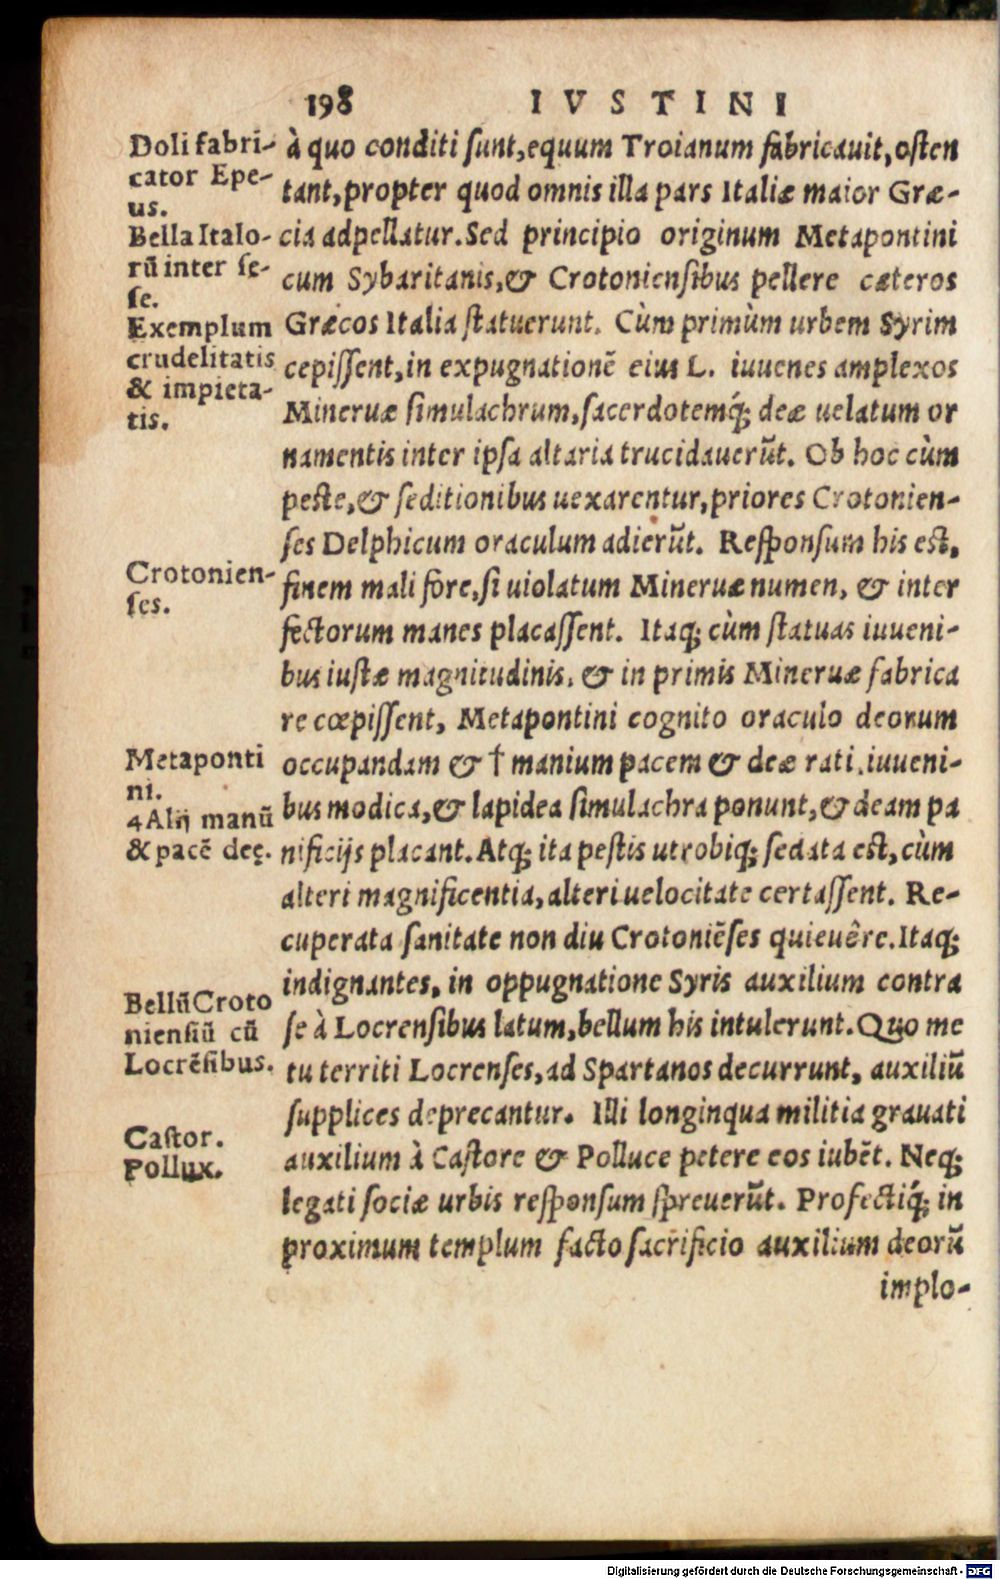 198 IVSTINI
Doli fabri-
cator Epe-
us.
Bella Italo-
rũ inter se-
se.
Exemplum
crudelitatis
& impieta-
tis.
Crotonien-
ses.
Metaponti
ni.
4 Alij manũ
& pacẽ deę.
Bellũ Croto
niensiũ cũ
Locrẽsibus.
Castor.
Pollux.
à quo conditi sunt, equum Troianum fabricauit, osten
tant, propter quod omnis illa pars Italiæ maior Græ-
cia adpellatur. Sed principio originum Metapontini
cum Sybaritanis, & Crotoniensibus pellere cæteros
Græcos Italia statuerunt. Cùm primùm urbem Syrim
cepissent, in expugnationẽ eius L. iuuenes amplexos
Mineruæ simulachrum, sacerdotemq́; deæ uelatum or
namentis inter ipsa altaria trucidauerũt. Ob hoc cùm
peste, & seditionibus uexarentur, priores Crotonien-
ses Delphicum oraculum adierũt. Responsum his est,
finem mali fore, si uiolatum Mineruæ numen, & inter
fectorum manes placassent. Itaq; cùm statuas iuueni-
bus iustæ magnitudinis, & in primis Mineruæ fabrica
re cœpissent, Metapontini cognito oraculo deorum
occupandam & † manium pacem & deæ rati, iuueni-
bus modica, & lapidea simulachra ponunt, & deam pa
nificijs placant. Atq; ita pestis utrobiq; sedata est, cùm
alteri magnificentia, alteri uelocitate certassent. Re-
cuperata sanitate non diu Crotoniẽses quieuêre. Itaq;
indignantes, in oppugnatione Syris auxilium contra
se à Locrensibus latum, bellum his intulerunt. Quo me
tu territi Locrenses, ad Spartanos decurrunt, auxiliũ
supplices deprecantur. Illi longinqua militia grauati
auxilium à Castore & Polluce petere eos iubẽt. Neq;
legati sociæ urbis responsum spreuerũt. Profectiq́; in
proximum templum facto sacrificio auxilium deorũ
implo-
Digitalisierung gefördert durch die Deutsche Forschungsgemeinschaft - DFG